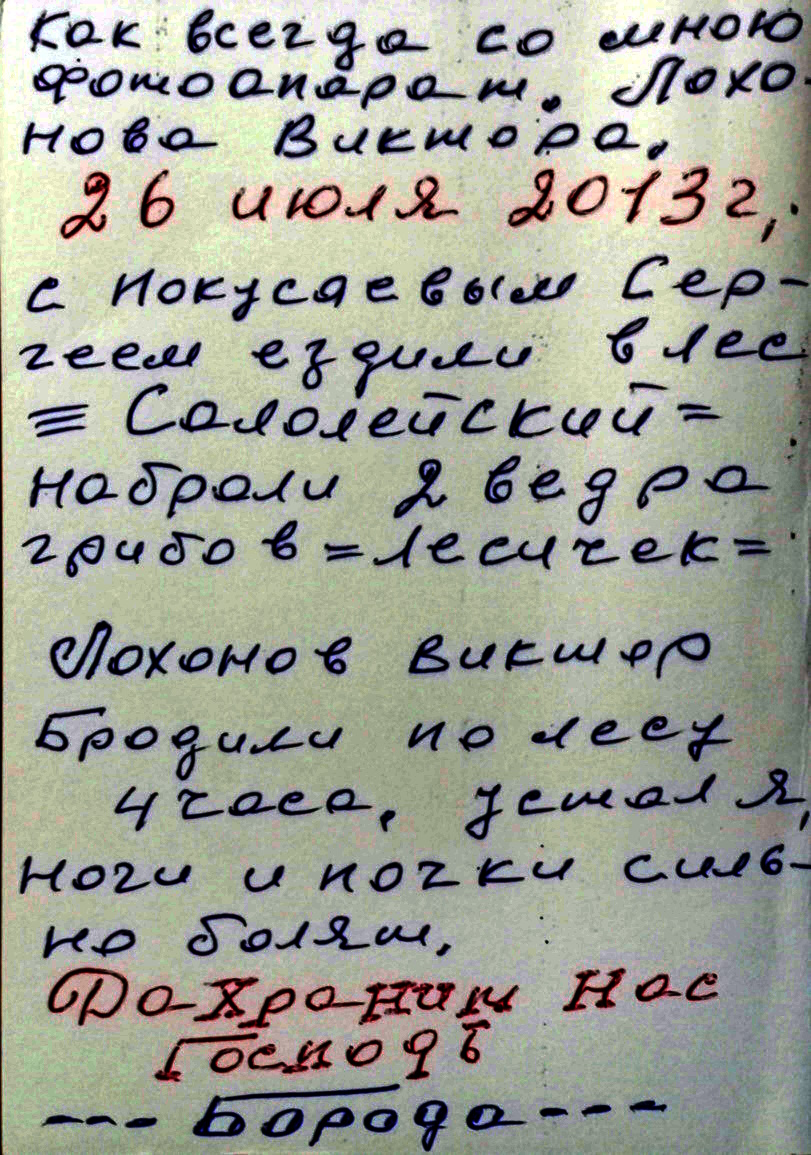 Как всегда со мною
фотоапарат. Лохо-
нова Виктора.
26 июля 2013г,.
с Нокусаевым Сер-
геем ездили в лес
≡ Сололейский =
набрали 2 ведра
грибов = лесичек =
Лохонов Виктор
Бродили по лесу
4 часа, устал я,
ноги и почки силь-
но болят.
Да-Хра-ним Нас
Господь
---- Борода ---